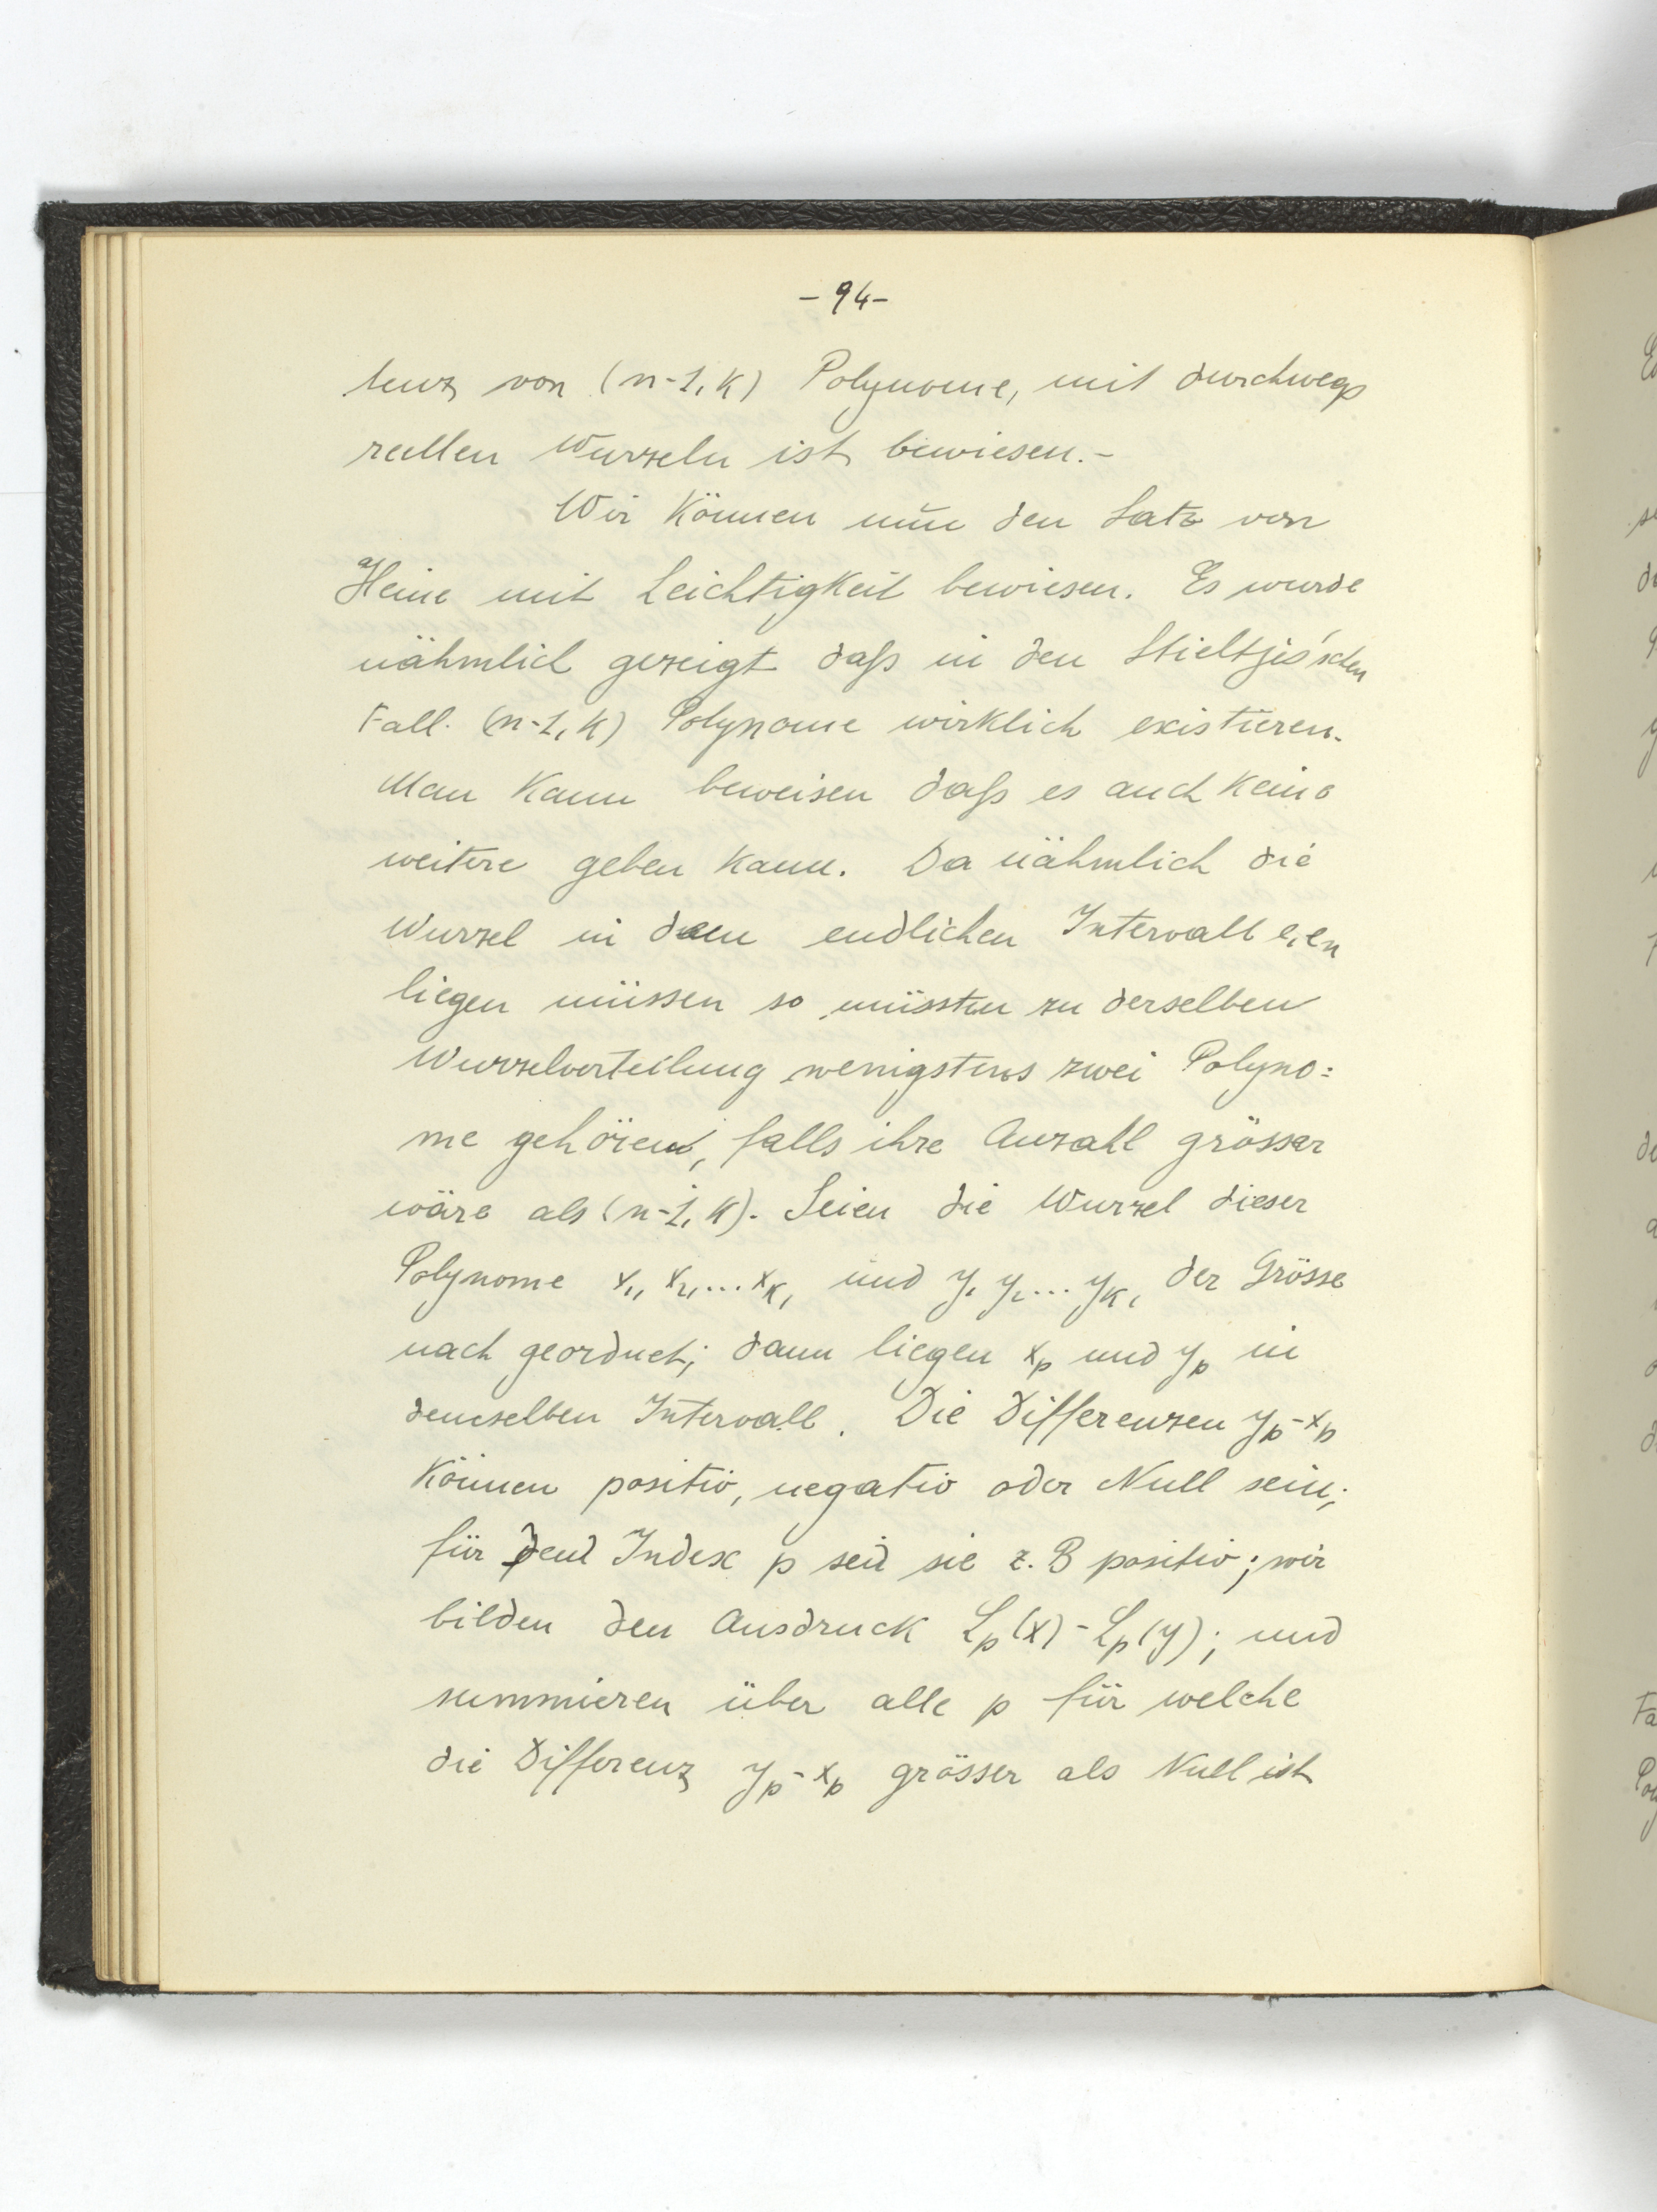 - 94 -
tenz von (n-1, k) Polynome, mit durchwegs
reellen Wurzeln ist bewiesen.-
Wir können nun den Satz von
Heine mit Leichtigkeit bewiesen. Es wurde
nähmlich gezeigt daß in den Stieltjes'schen
Fall (n-1, k) Polynome wirklich existieren.
Man kann beweisen daß es auch keine
weitere geben kann. Da nähmlich die
Wurzel in dem endlichen Intervall e₁ eₙ
liegen müssen so müssten zu derselben
Wurzelverteilung wenigstens zwei Polyno=
me gehören, falls ihre Anzahl grösser
wäre als (n-1, k). Seien die Wurzel dieser
Polynome x₁, x₂, ... xₖ, und y₁ y₂ ... yₖ, der Grösse
nach geordnet; dann liegen xₚ und yₚ in
demselben Intervall. Die Differenzen yₚ-xₚ
können positiv, negativ oder Null sein;
für den Index p sei sie z. B positiv; wir
bilden den Ausdruck Lₚ(x) - Lₚ(y); und
summieren über alle p für welche
die Differenz yₚ-xₚ grösser als Null ist